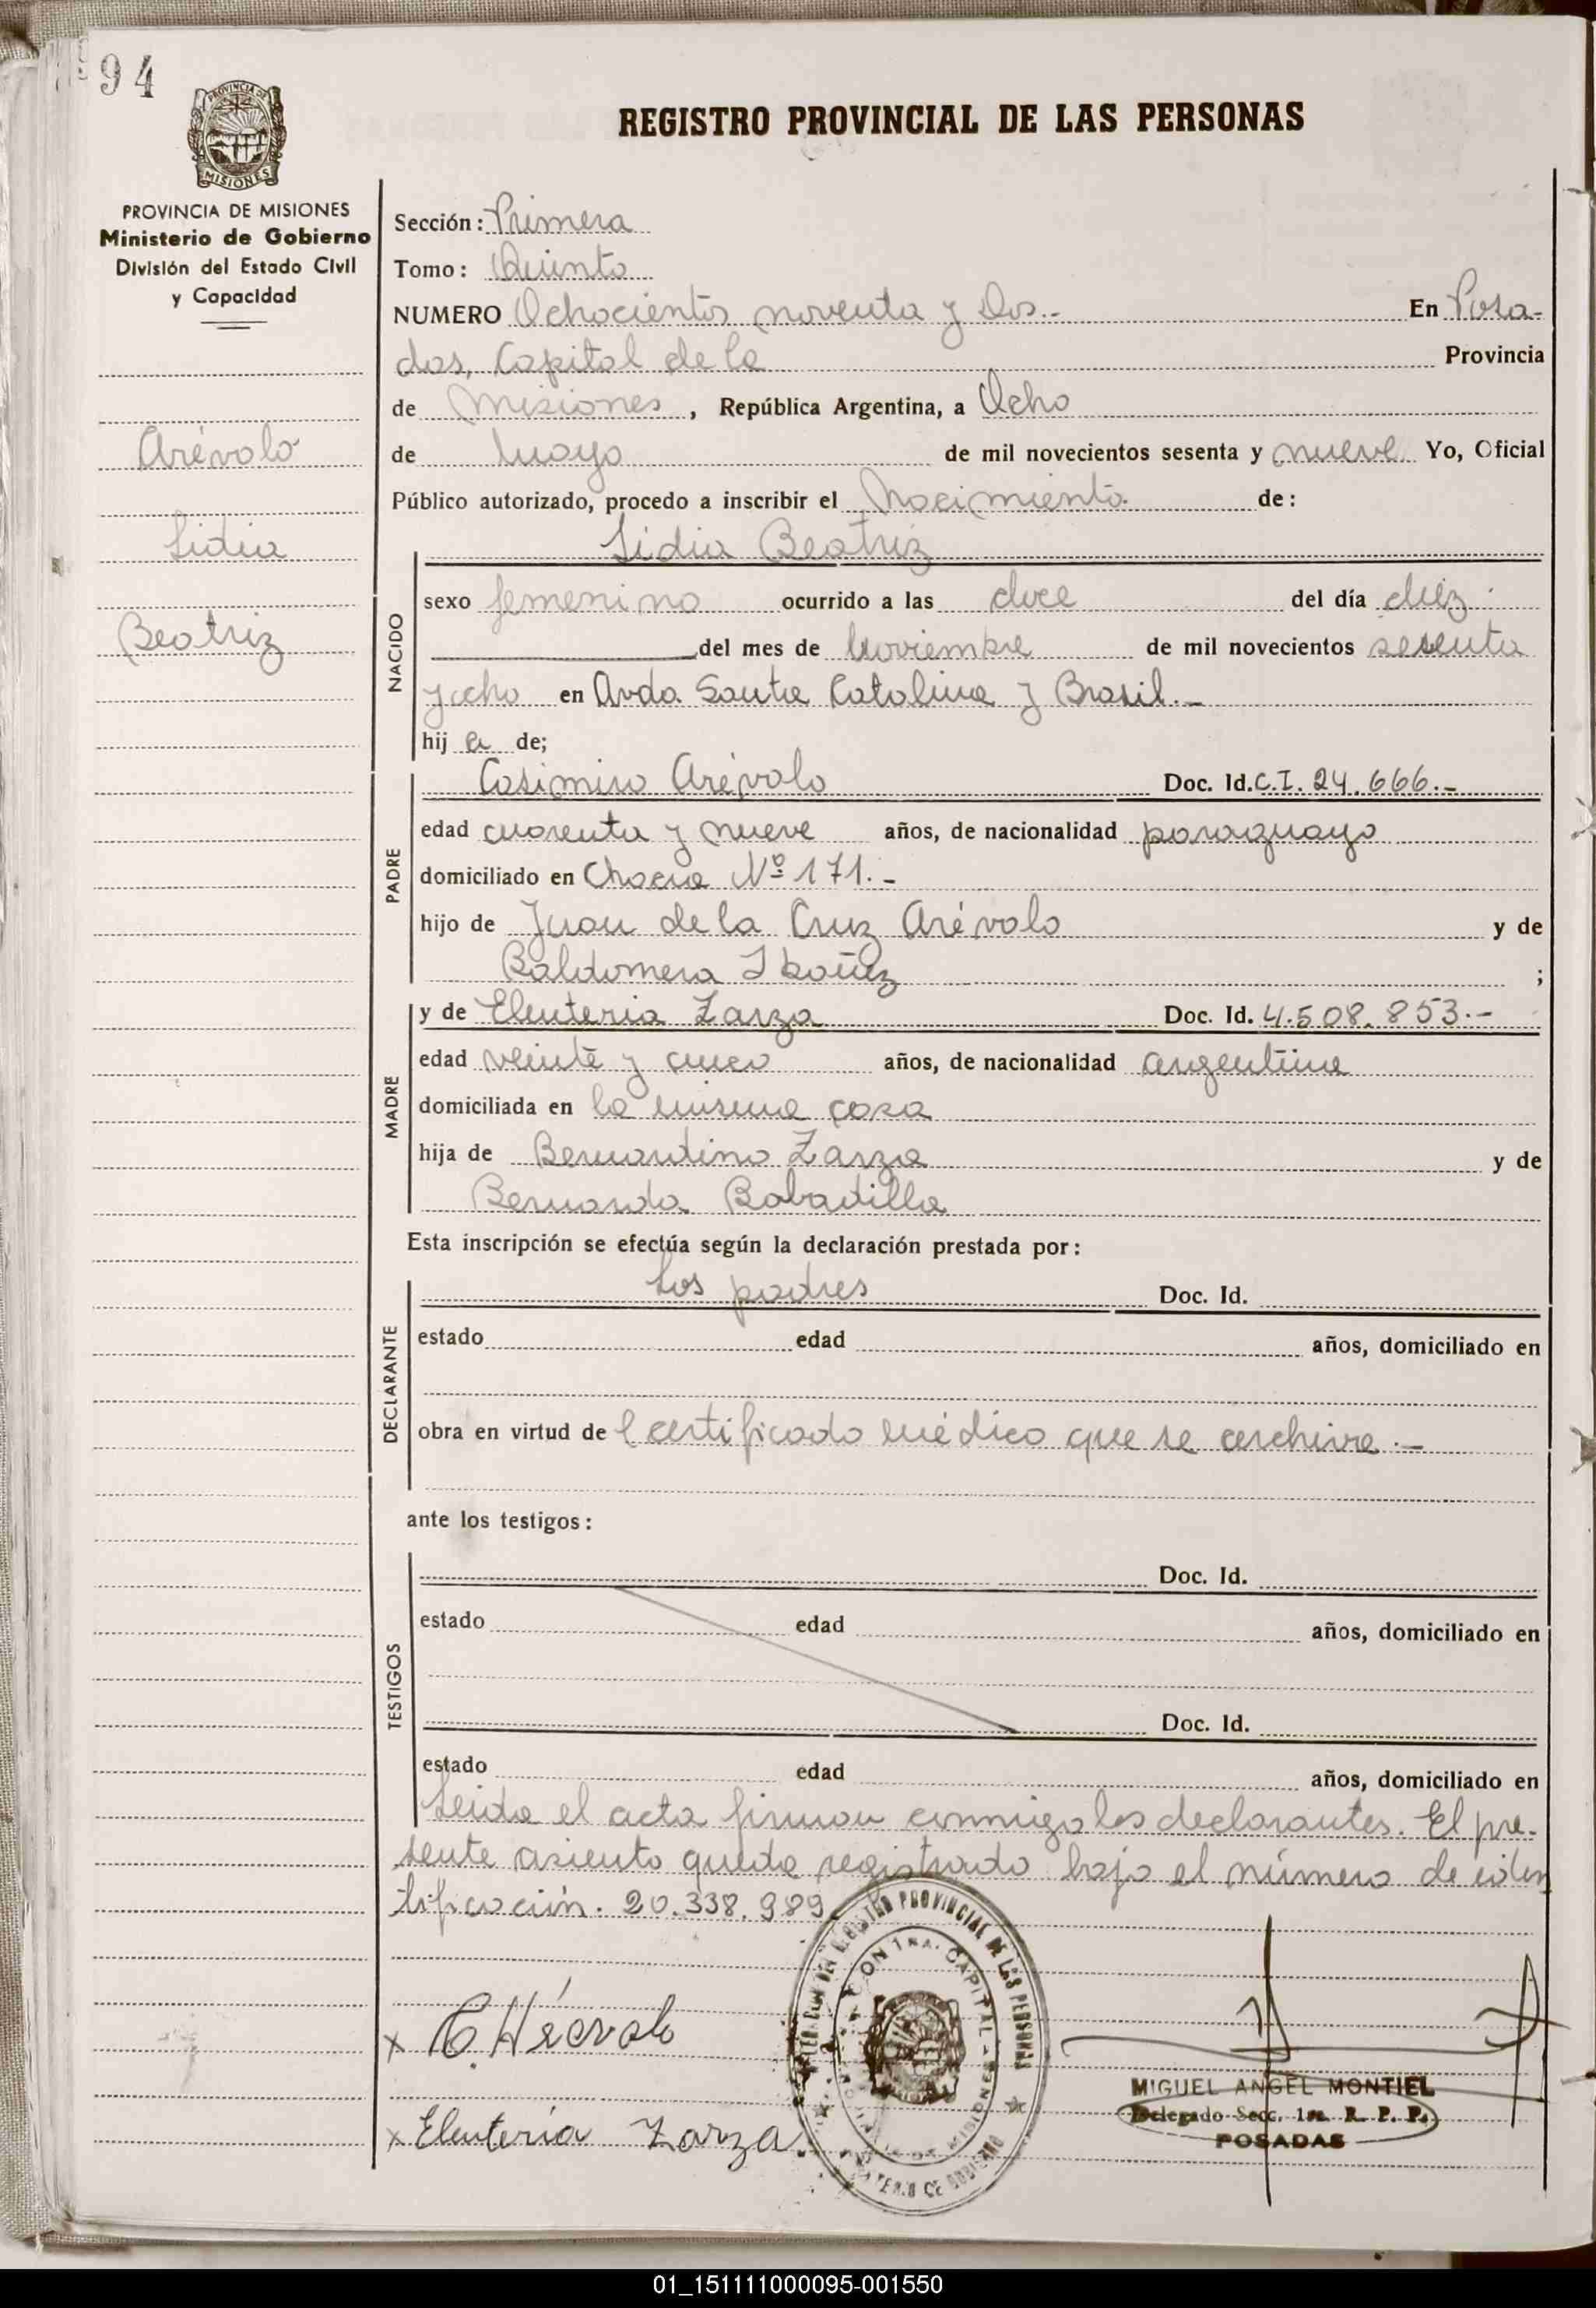 94
REGISTRO PROVINCIAL DE LAS PERSONAS
PROVINCIA DE MISIONES
Ministerio de Gobierno
División del Estado Civil
y Capacidad
Arévalo
Lidia
Beatriz
Sección: Primera
Tomo: Quinto
NUMERO Ochocientos noventa y Dos.- En Posa-
das, Capital de la Provincia
de Misiones, República Argentina, a Ocho
de Mayo de mil novecientos sesenta y nueve Yo, Oficial
Público autorizado, procedo a inscribir el Nacimiento de:
Lidia Beatriz
NACIDO
sexo femenino ocurrido a las doce del día diez
del mes de Noviembre de mil novecientos sesenta
y ocho en Avda. Santa Catalina y Brasil.-
hij a de;
PADRE
Casimiro Arévalo Doc. Id. C.I. 24.666.-
edad cuarenta y nueve años, de nacionalidad paraguayo
domiciliado en Chacra Nº 171.-
hijo de Juan de la Cruz Arévalo y de
Baldomera Ibañez ;
MADRE
y de Eleuteria Zarza Doc. Id. 4.508.853.-
edad veinte y cinco años, de nacionalidad argentina
domiciliada en la misma casa
hija de Bernardino Zarza y de
Bernarda Bobadilla
Esta inscripción se efectúa según la declaración prestada por:
DECLARANTE
Los padres Doc. Id.
estado edad años, domiciliado en
obra en virtud de l certificado médico que se archiva.-
ante los testigos:
TESTIGOS
Doc. Id.
estado edad años, domiciliado en
Doc. Id.
estado edad años, domiciliado en
Leida el acta firman conmigo los declarantes. El pre-
sente asiento queda registrado bajo el número de iden
tificación. 20.338.989
C. Arévalo
x Eleuteria Zarza
REGISTRO PROVINCIAL DE LAS PERSONAS
CAPITAL
MISIONES
MIGUEL ANGEL MONTIEL
Delegado Secc. 1ra. R. P. P.
POSADAS
01_151111000095-001550